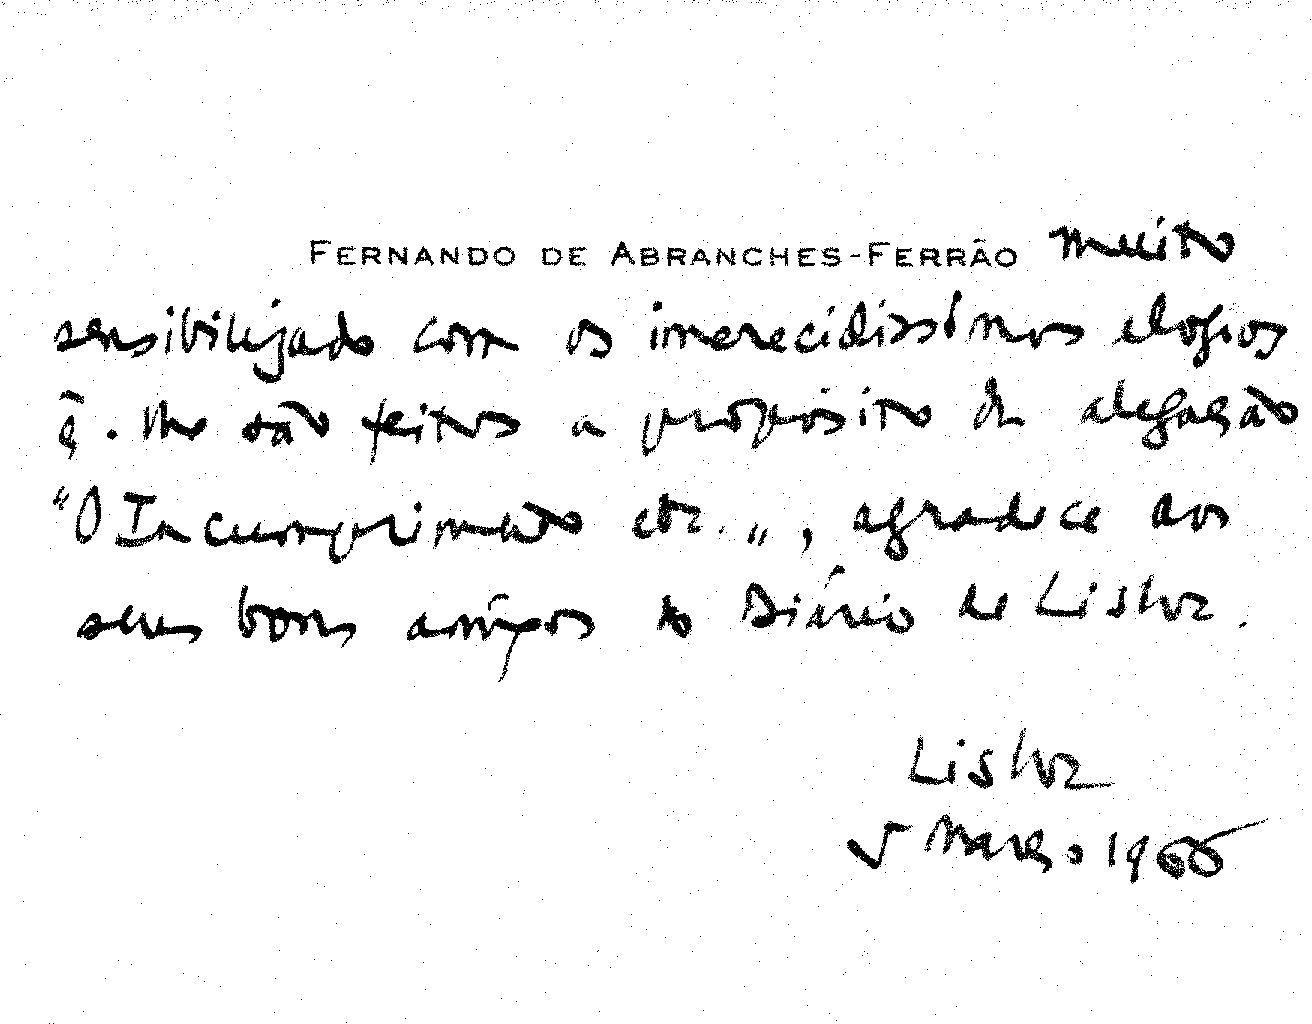 FERNANDO DE ABRANCHES-FERRÃO muito
sensibilizado com os imerecidissimos elogios
q̃. lhe são feitos a propósito da alegação
"O Incumprimento etc.", agradece aos
seus bons amigos do Diário de Lisboa.
Lisboa
5 Março 1966